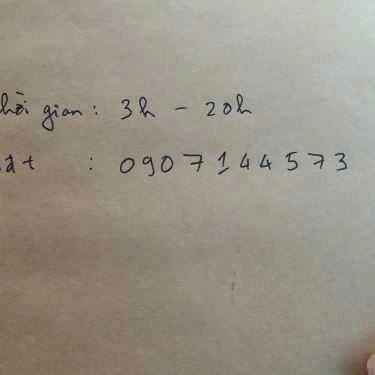 hời gian : 3h - 20h
đt : 0907144573